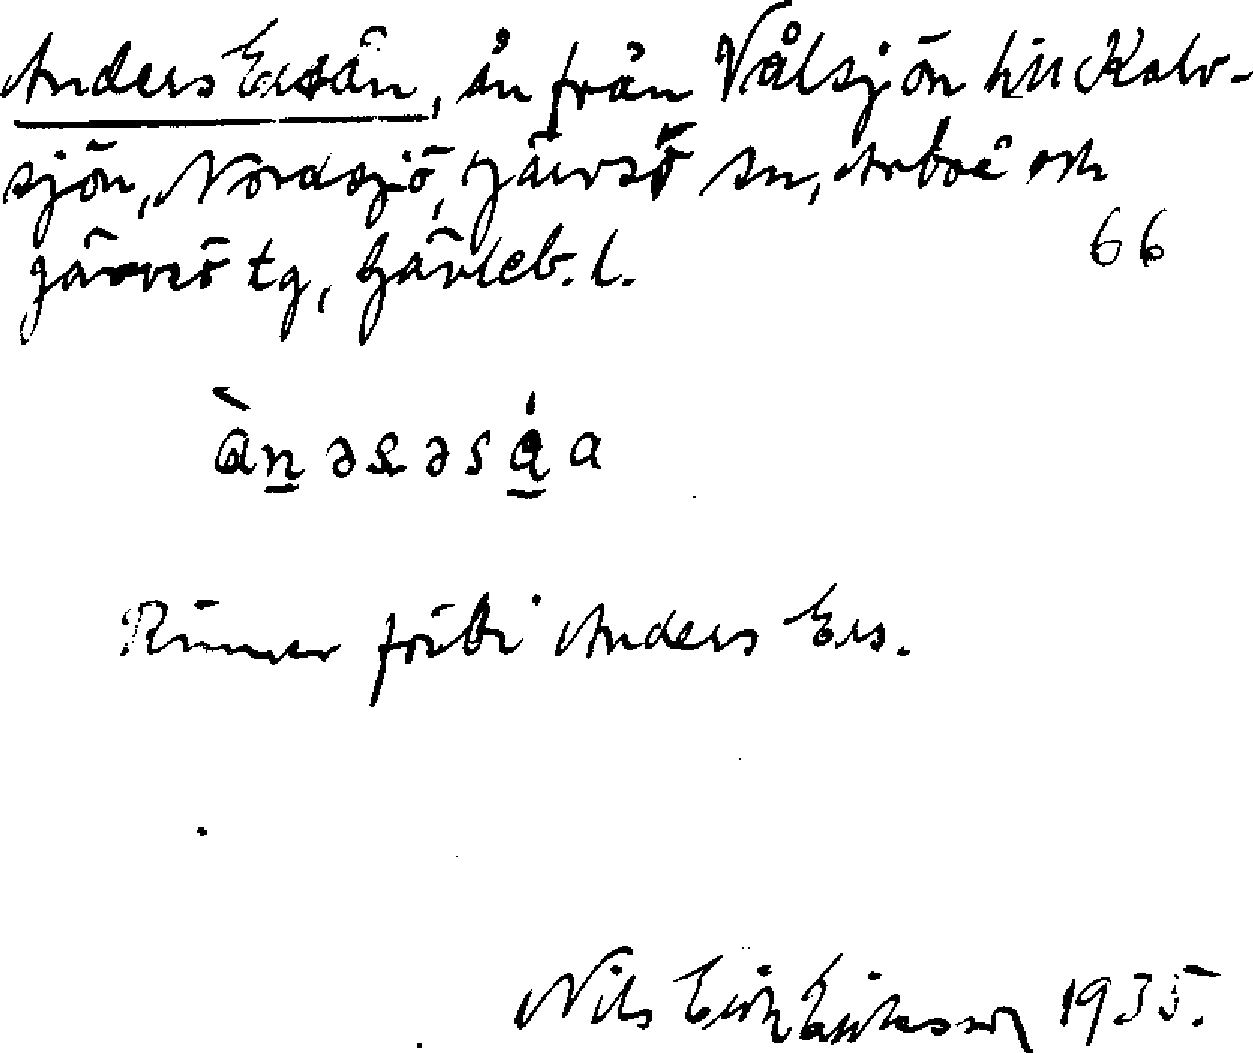 Anders Ersån, ån från Vålsjön till Kalv-
sjön, Nordsjö, Järvsö sn, Arbrå och
Järvsö tg, Gävleb. l.
66
Rinner förbi Anders Ers.
Nils Erik Eriksson 1935.